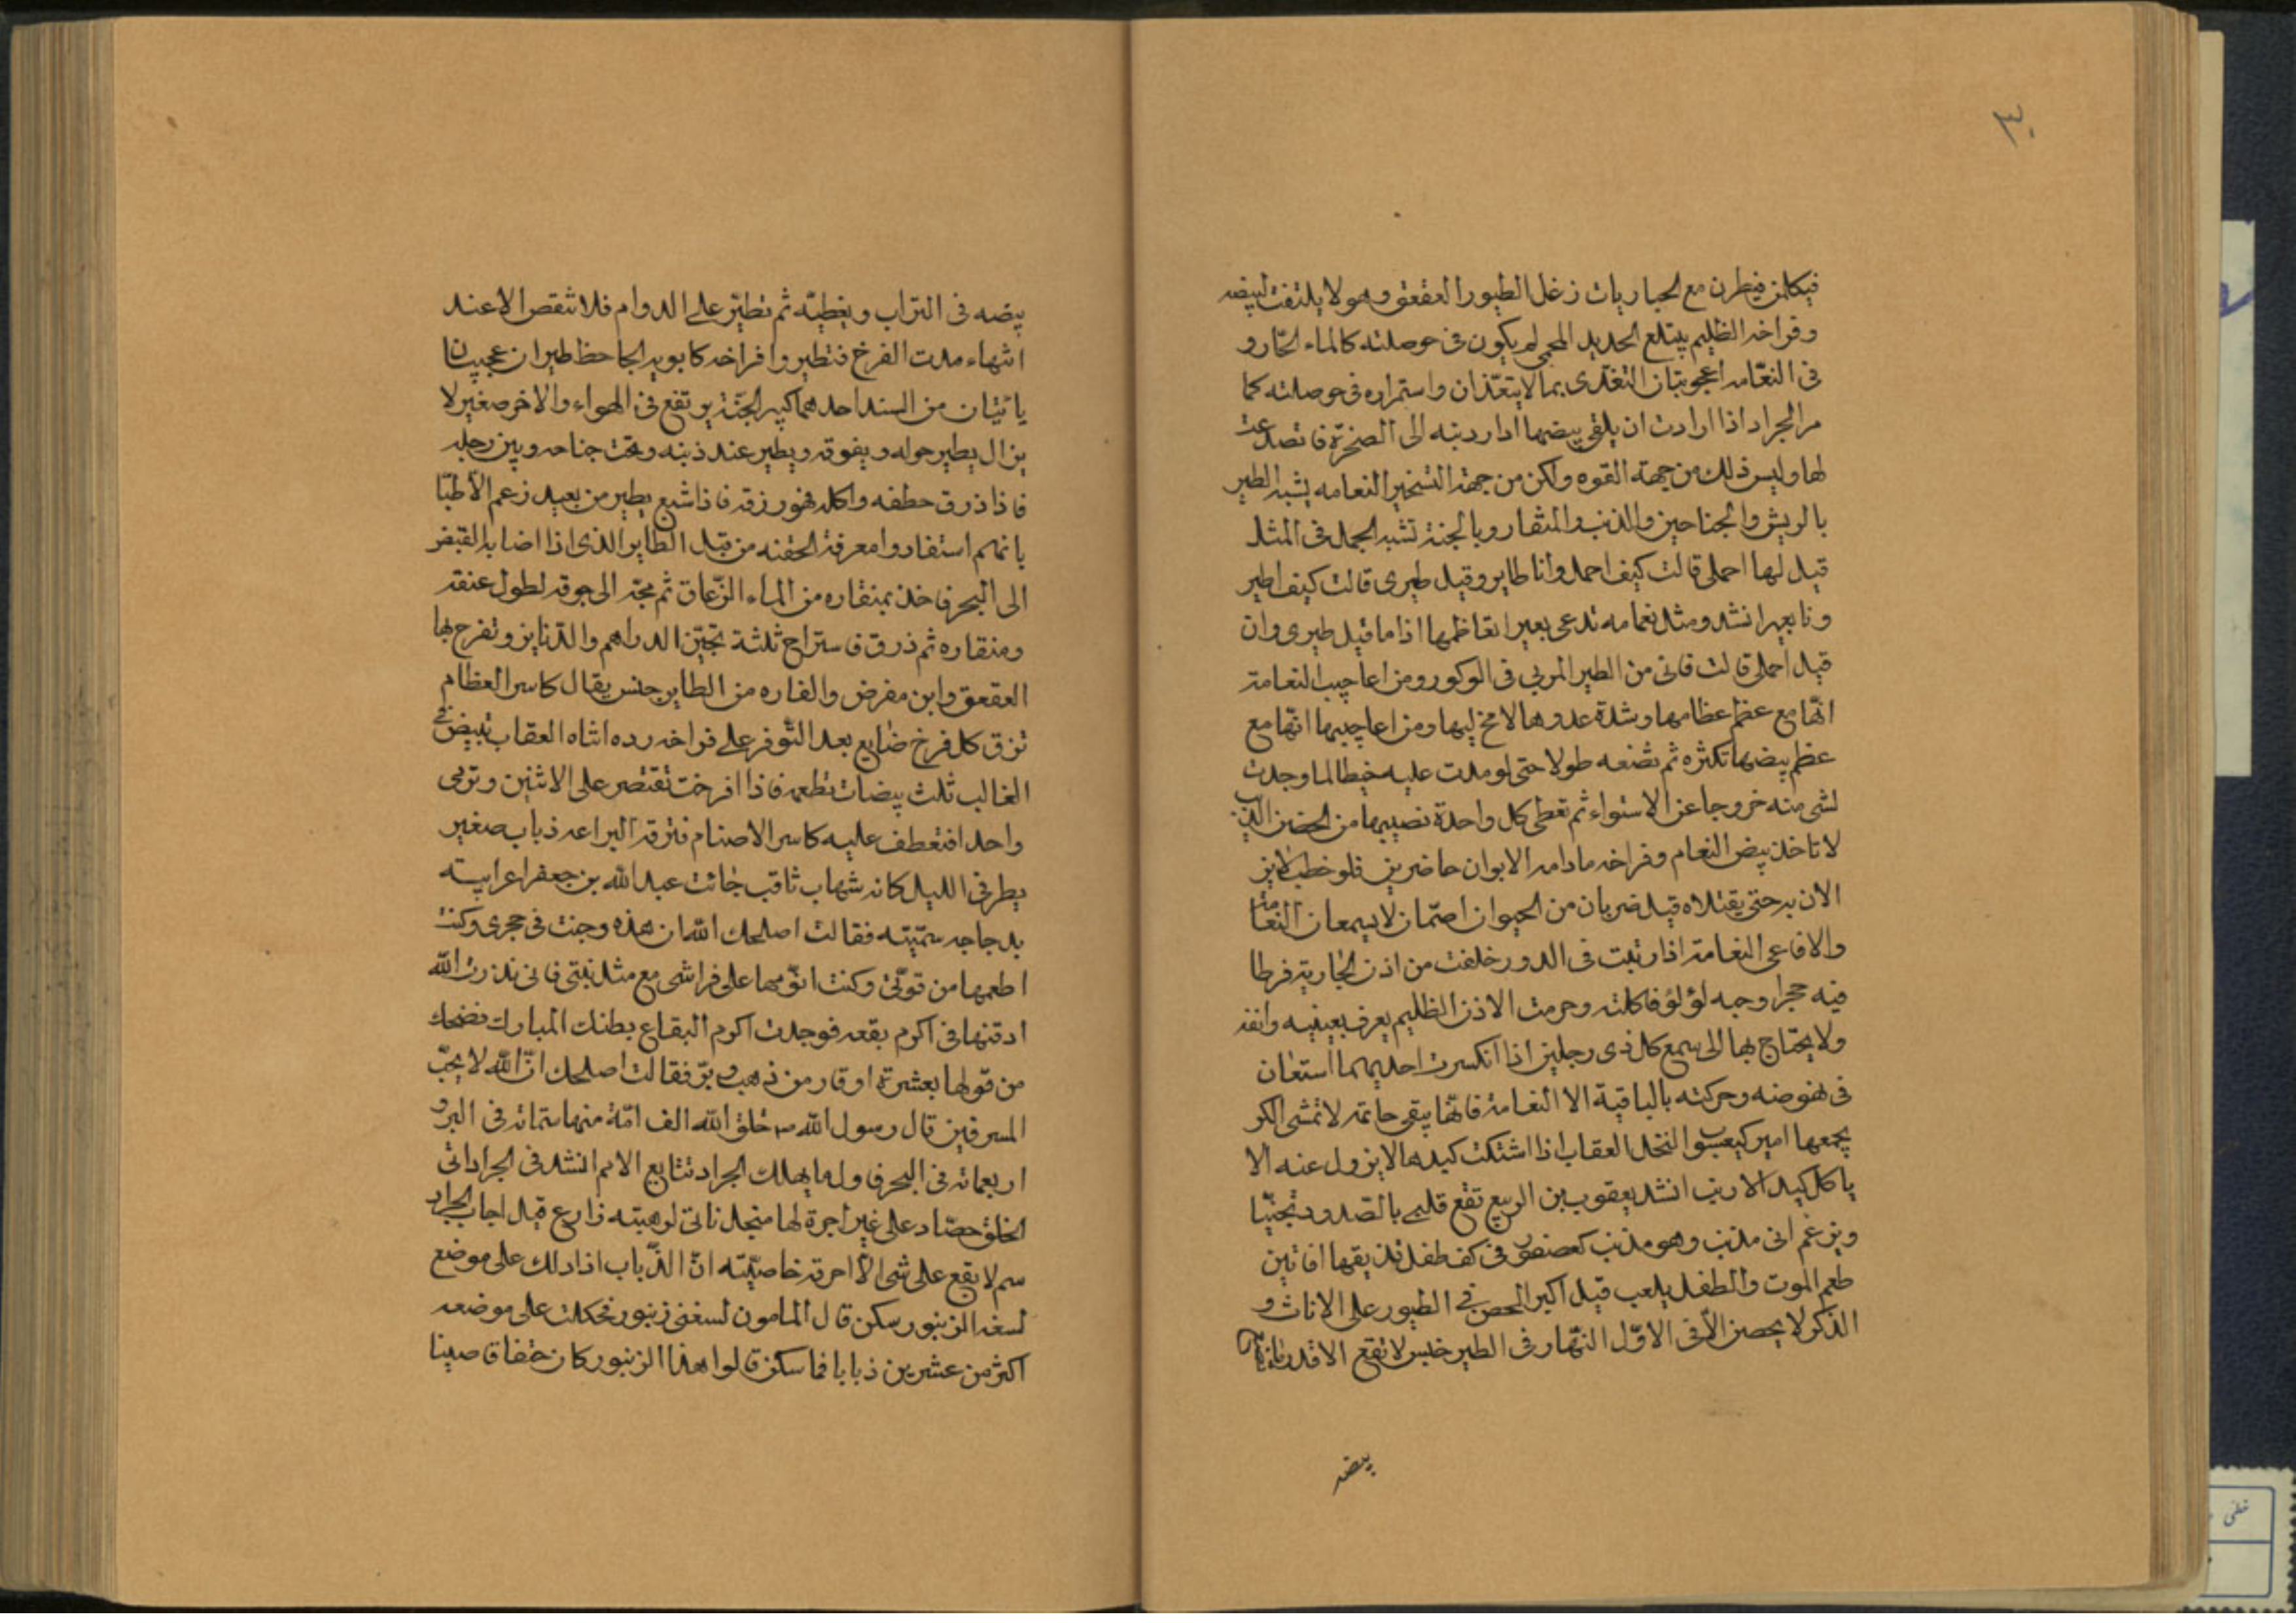 ٣٠
فيكلمن فيطرن مع الحباريات زغل الطيور العقعق وهو لا يلتفت لبيضه
وفراخه الظليم يبتلع الحديد المحمى لم يكون فى حوصلته كالماء الحار و
فى النعامه اعجوبتان التغذى بما لا يتغذان واستمراره فى حوصلته كما
مر الجراد اذا ارادت ان يلقى بيضها ادا ردبته الى الصخرة فانصدعت
لها وليس ذلك من جهته القوه ولكن من جهة التسخير النعامه يشبه الطير
بالريش والجناحين والذنب والمنقار وبالجنة تشبه الجمل فى المثل
قيل لها احملى قالت كيف احمل وانا طاير وقيل طيرى قالت كيف اطير
ونا بعير انشد ومثل نعامه تدعى بعيرا تعاظمها اذا ما قيل طيرى وان
قيل احملى قالت فانى من الطير المربى فى الوكور ومن اعاجيب النعامة
انها مع عظم عظامها وشدة عدوها لا مخ ليها ومن اعاجيبها انها مع
عظم بيضها تكثره ثم تضعه طولا حتى لو مدت عليه خيطا لما وجدت
لشى منه خروجا عن الاستواء ثم تعطى كل واحدة نصيبها من الحضن الذيب
لا تاخذ بيض النعام وفراخه مادامه الابوان حاضرين فلو
الان به حتى يقتلاه قيل ضربان من الحيوان اصمان لا يسمعان النعامة
والافاعى النعامة اذا ربت فى الدور خلفت من اذن الجارية قرطا
فيه حجرا وحبه لؤلؤ فاكلته وخرمت الاذن الظليم يعرف بعينيه وانفه
ولا يحتاج بها الى سمع كل ذى رجلين اذا انكسرت احديهما استعان
فى نهوضه وحركته بالباقية الا النعامة فانها يبقى جاثمه لا تمشى الكر
يجمعها امير كيعسوب النحل العقاب اذا اشتكت كبدها لا يزول عنه الا
ياكل كبد الارنب انشد يعقوب بن الربيع تقع قلبى بالصدود تجنيا
ويزعم انى مذنب وهو مذنب كعصفور فى كف طفل يذيقها افانين
طعم الموت والطفل يلعب قيل اكبر الحضن فى الطيور على الاناث و
الذكر لا يحضن الا فى الاول النهار وفى الطير خبيس لا تقع الا قدر
بيضه
بيضه فى التراب ويغطيه ثم تطير على الدوام فلا تنقص الا عند
انتهاء مدت الفرخ فتطير وافراخه كابويه الجاحظ طيران عجيبان
ياتيان من السند احدهما كبير الجثة يرتفع فى الهواء والاخر صغير لا
يزال يطير حوله ويفوقه ويطير عند ذنبه وتحت جناحه وبين رجليه
فاذا ذرق خطفه واكله فهو رزقه فاذا شبع يطير من بعيد زعم الاطبا
بانهم استفادوا معرفة الحقنه من قبل الطاير الذى اذا اصابه القبض
الى البحر فاخذ بمنقاره من الماء الزعاق ثم مجه الى جوفه لطول عنقه
ومنقاره ثم ذرق فاستراح ثلثة تحبن الدراهم والدنانير وتفرح بها
العقعق وابن مقرض والفاره من الطاير جنس يقال كاسر العظام
تزق كل فرخ ضايع بعد التوفر على فراخه رده اثناه العقاب تبيض فى
الغالب ثلث بيضات تطعمه فاذا افرخت تقتصر على الاثنين وترمى
واحدا فتعطف عليه كاسر الاصنام فتزقه البراعه ذباب صغير
يطر فى الليل كانه شهاب ثاقب جائت عبد الله بن جعفر اعرابيته
بدجاجه سمينه فقالت اصلحك الله ان هذه وجنت فى حجرى وكنت
اطعمها من قوتى وكنت انومها على فراشى مع مثل بنتى فانى نذرت الله
ادفنها فى اكرم بقعه فوجدت اكرم البقاع بطنك المبارك فضحك
من قولها بعشرة اوقار من ذهب وبر فقالت اصلحك ان الله لا يحب
المسرفين قال رسول الله ص خلق الله الف امة منها ستمائه فى البر و
اربعمائه فى البحر فاول ما يهلك الجراد تتابع الامم انشد فى الجراد اتى
الخلق حصاد على غير اجرة لها منجل ناتى لوهبته زارع قيل اجاب الجراد
سم لا يقع على شى الا احرقه خاصيته ان الذباب اذا دلك على موضع
لسعه الزنبور سكن قال المامون لسعنى زنبور فحككت على موضعه
اكثر من عشرين ذبابا فما سكن قالوا هذا الزنبور كان حتفا قاضينا
خطى